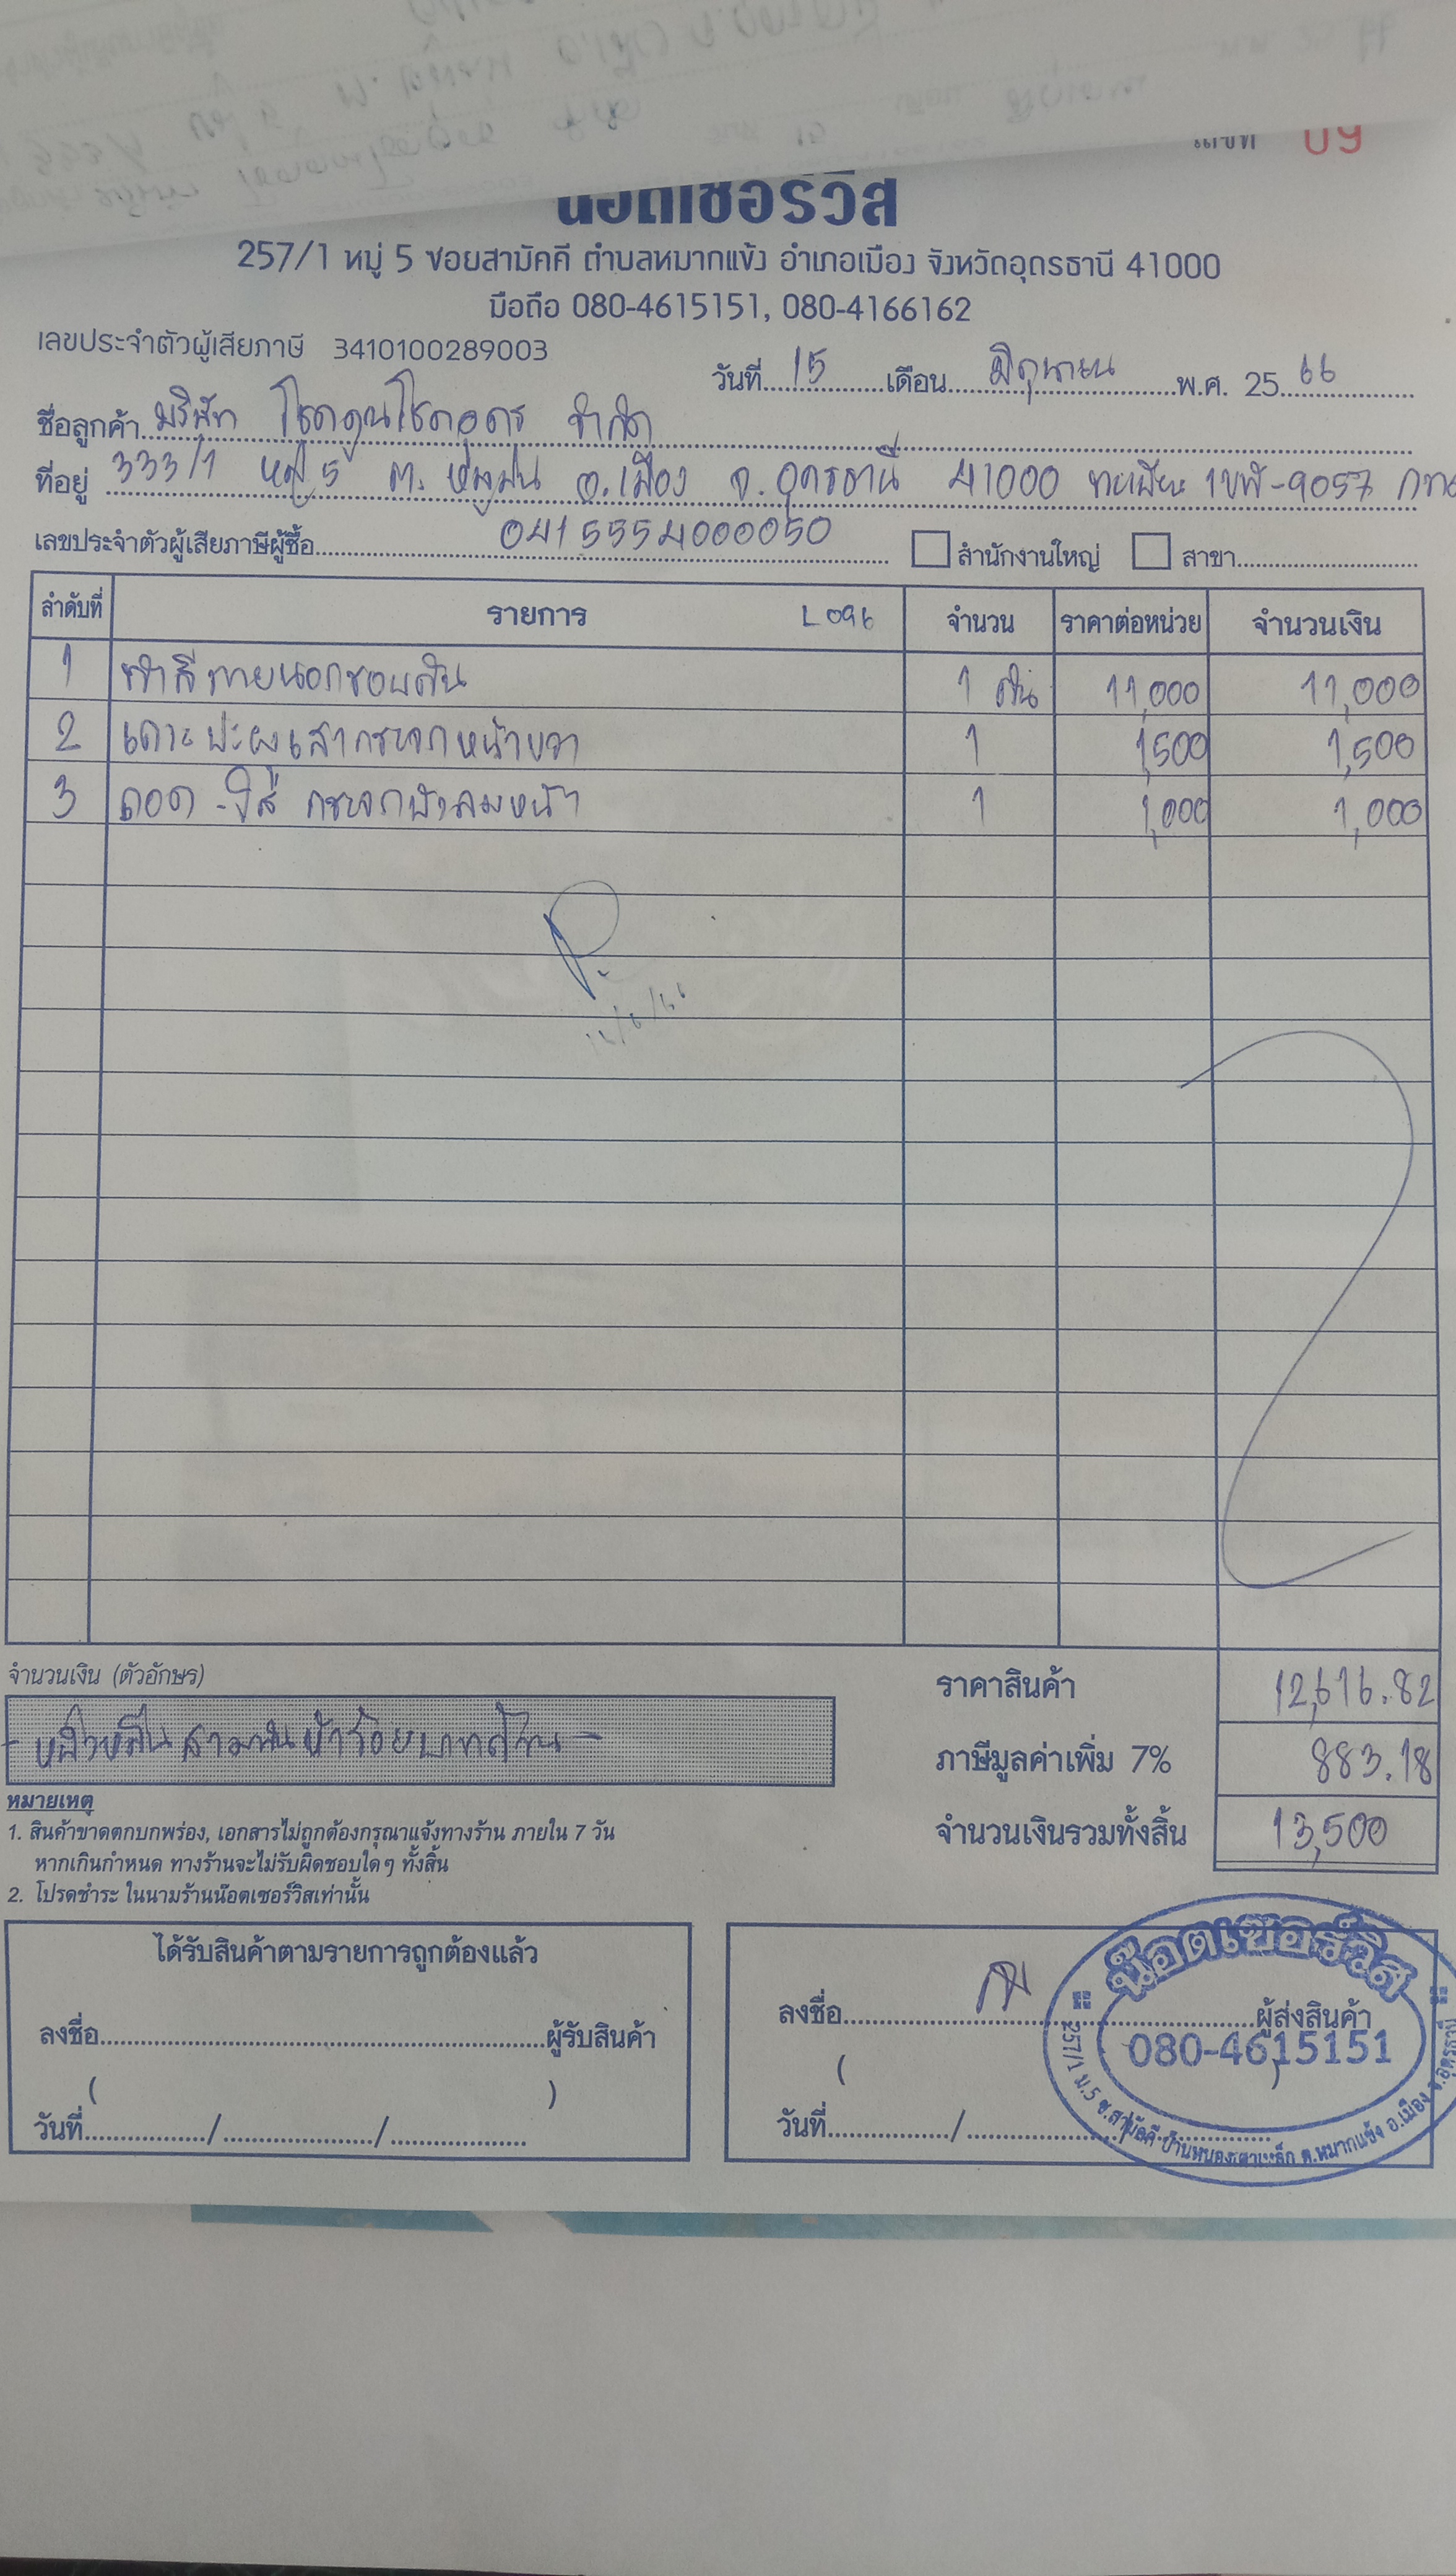 เลขที่ 09
น๊อตเซอร์วิส
257/1 หมู่ 5 ซอยสามัคคี ตำบลหมากแข้ง อำเภอเมือง จังหวัดอุดรธานี 41000
มือถือ 080-4615151, 080-4166162
เลขประจำตัวผู้เสียภาษี 3410100289003
วันที่ 15 เดือน มิถุนายน พ.ศ. 25 66
ชื่อลูกค้า บริษัท โชคคูนโชคอุดร จำกัด
ที่อยู่ 333/1 หมู่ 5 ต. หมูม่น อ.เมือง จ.อุดรธานี 41000 ทะเบียน 1ขฬ-9057 กท
เลขประจำตัวผู้เสียภาษีผู้ซื้อ 0415554000050 สำนักงานใหญ่ สาขา
ลำดับที่ รายการ L096 จำนวน ราคาต่อหน่วย จำนวนเงิน
1 ทำสีภายนอกรอบคัน 1 คัน 11,000 11,000
2 เคาะปะผุเสากระจกหน้าขวา 1 1,500 1,500
3 ถอด-ใส่ กระจกบังลมหน้า 1 1,000 1,000
จำนวนเงิน (ตัวอักษร)
- หนึ่งหมื่นสามพันห้าร้อยบาทถ้วน -
ราคาสินค้า 12,616.82
ภาษีมูลค่าเพิ่ม 7% 883.18
จำนวนเงินรวมทั้งสิ้น 13,500
หมายเหตุ
1. สินค้าขาดตกบกพร่อง, เอกสารไม่ถูกต้องกรุณาแจ้งทางร้าน ภายใน 7 วัน
หากเกินกำหนด ทางร้านจะไม่รับผิดชอบใดๆ ทั้งสิ้น
2. โปรดชำระ ในนามร้านน๊อตเซอร์วิสเท่านั้น
ได้รับสินค้าตามรายการถูกต้องแล้ว
ลงชื่อ ผู้รับสินค้า
( )
วันที่ / /
ลงชื่อ ผู้ส่งสินค้า
( )
วันที่ / /
น๊อตเซอร์วิส
080-4615151
257/1 ม.5 ซ.สามัคคี บ้านหนองเตาเหล็ก ต.หมากแข้ง อ.เมือง จ.อุดรธานี